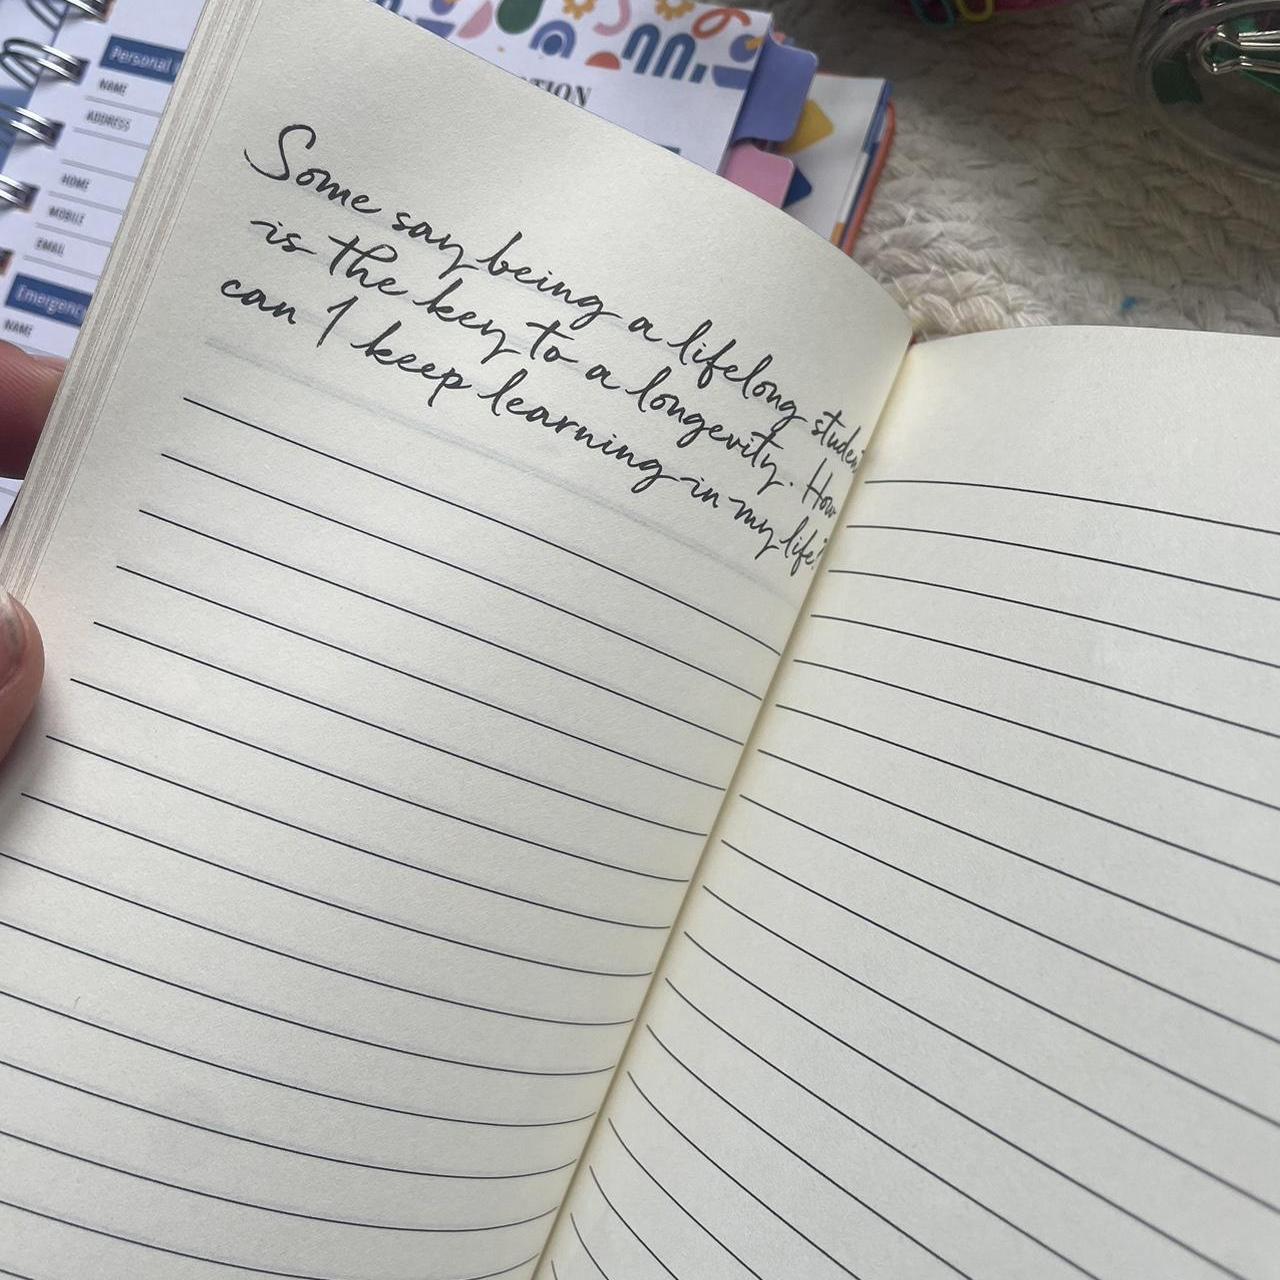 Personal
NAME
ADDRESS
HOME
MOBILE
EMAIL
Emergenc
NAME
TION
Some say being a lifelong student
is the key to a longevity. How
can I keep learning in my life?